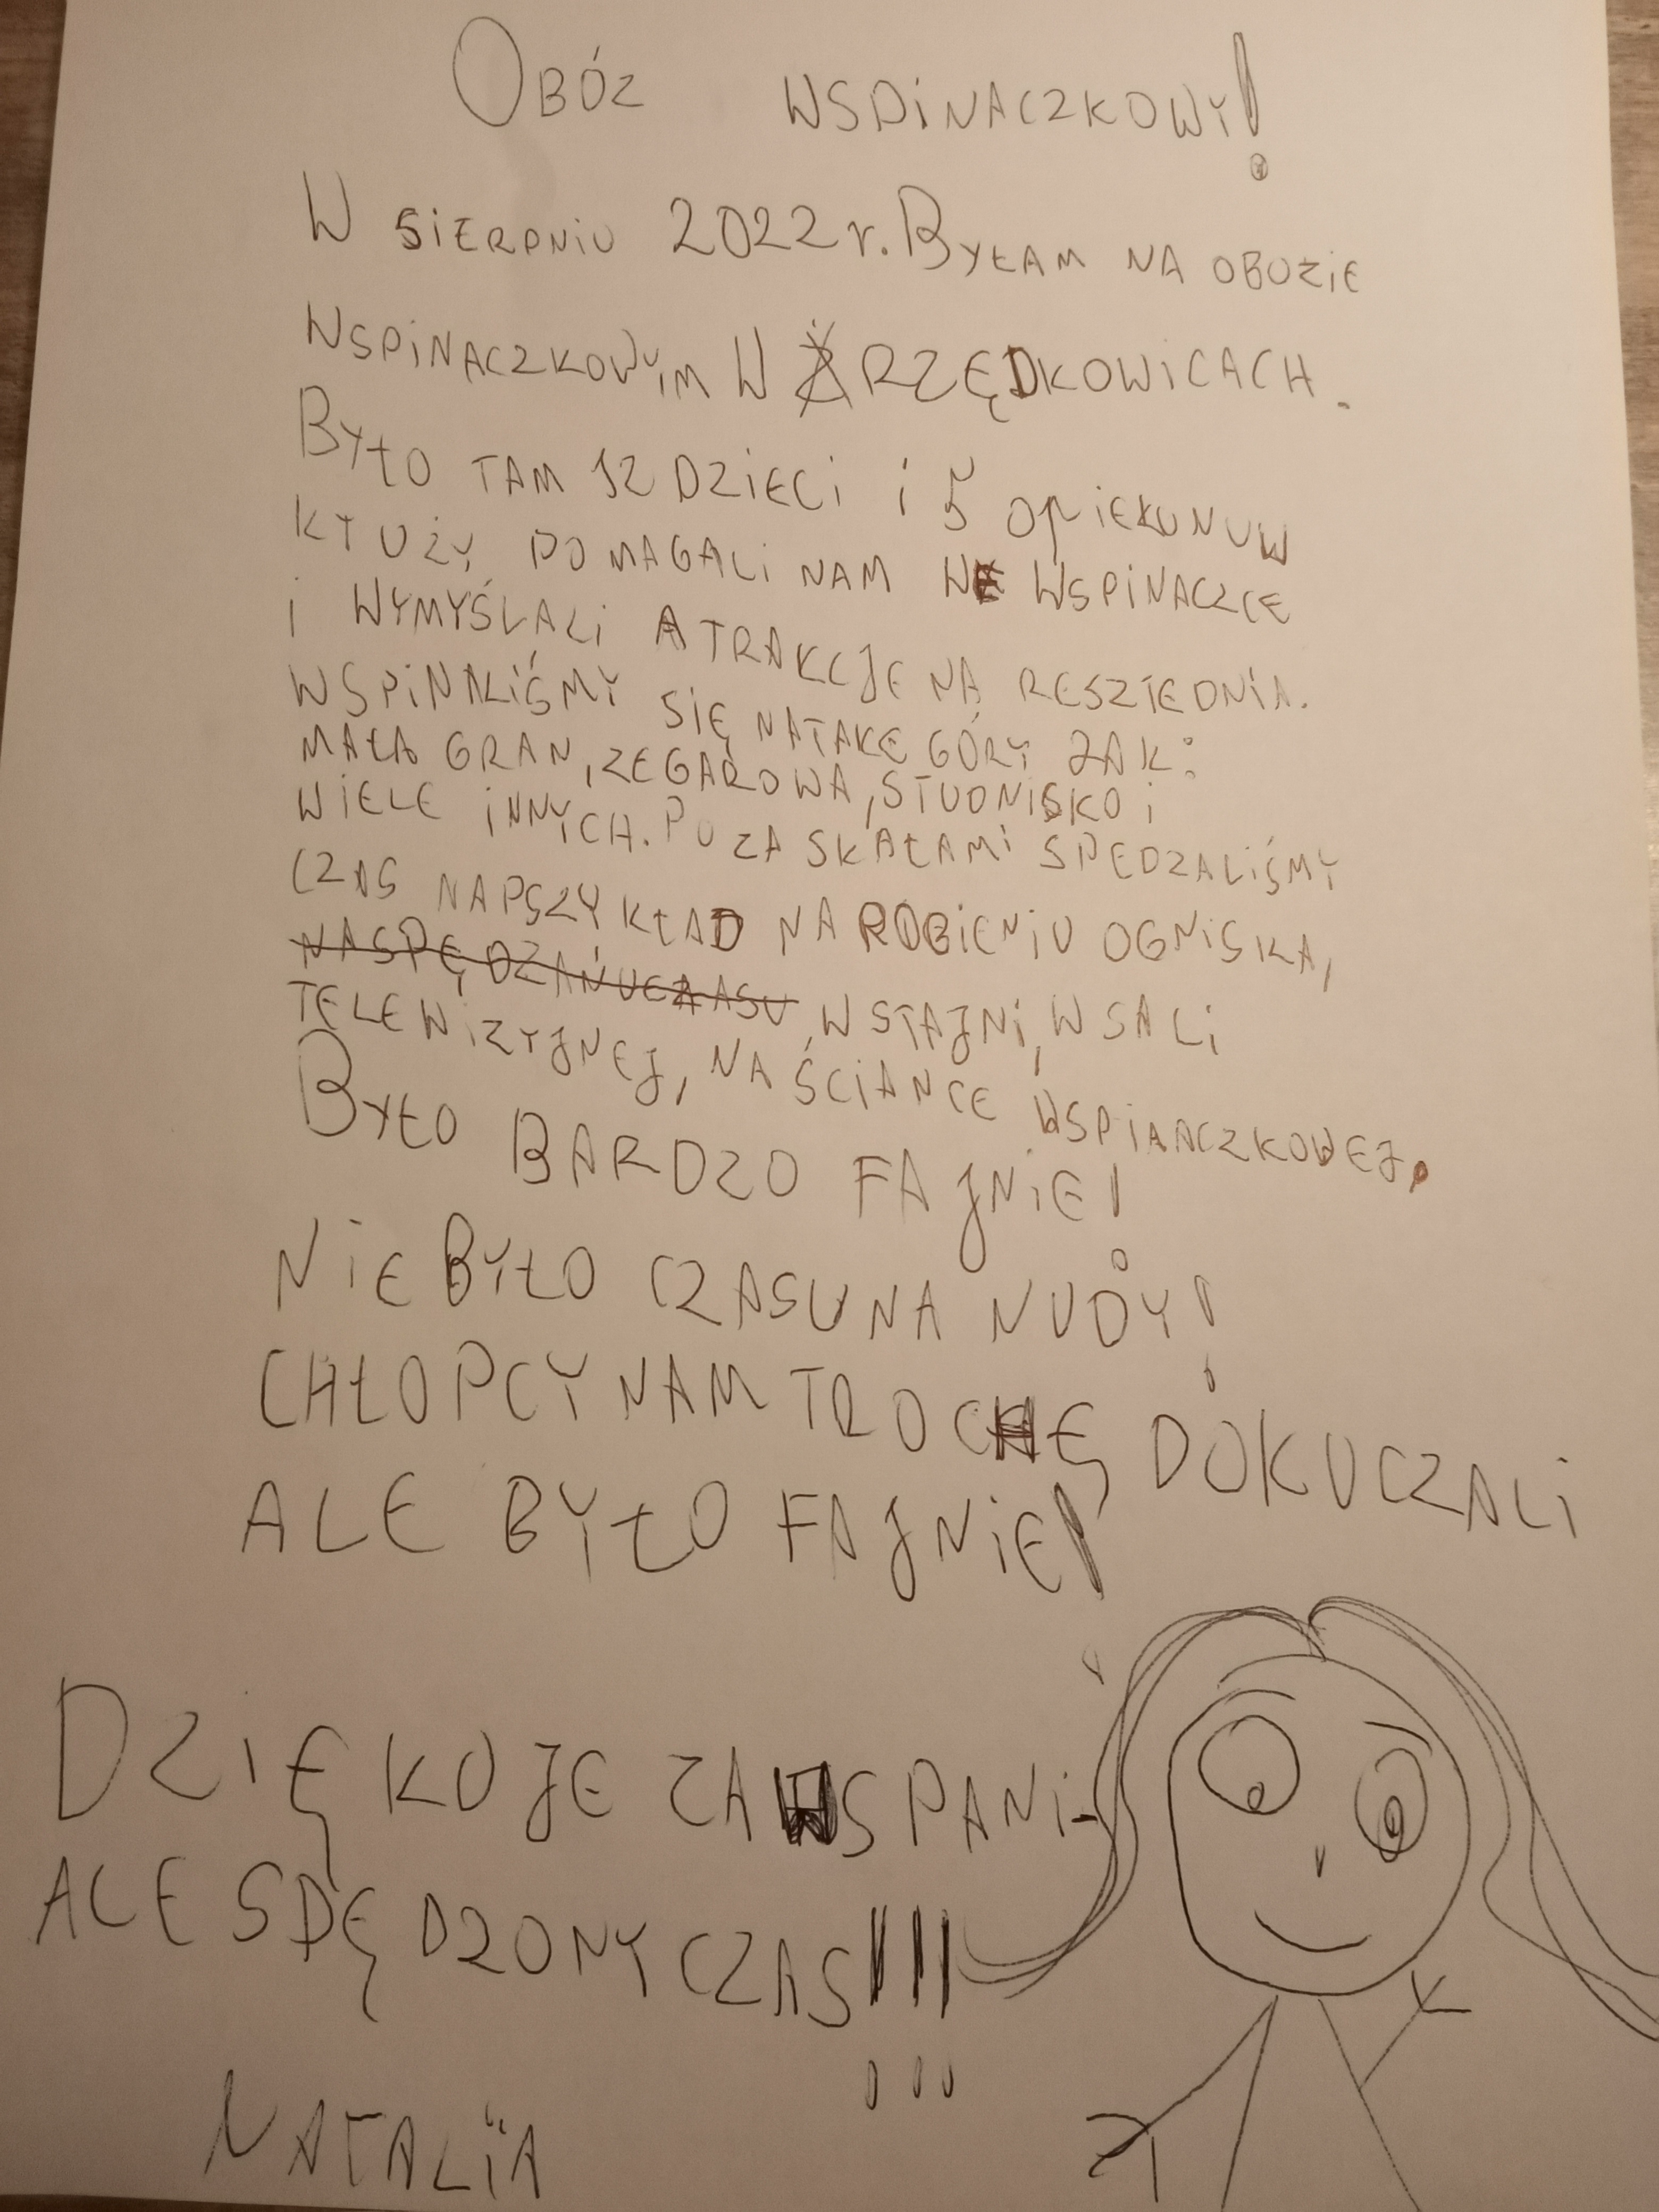 OBÓZ WSPINACZKOWY!
W SIERPNIU 2022 r. BYŁAM NA OBOZIE
WSPINACZKOWYM W RZĘDKOWICACH.
BYŁO TAM 12 DZIECI i 5 OPIEKUNUW
KTUŻY POMAGALI NAM WE WSPINACZCE
i WYMYŚLALI ATRAKCJE NA RESZTE DNIA.
WSPINALIŚMY SIĘ NA TAKE GÓRY JAK:
MAŁA GRAN, ZEGAROWA, STUDNISKO i
WIELE INNYCH. POZA SKAŁAMI SPEDZALIŚMY
CZAS NAPSZYKŁAD NA ROBIENIU OGNISKA,
NA SPĘDZANU CZASU W STAJNI, W SALI
TELEWIZYJNEJ, NA ŚCIANCE WSPIANCZKOWEJ.
BYŁO BARDZO FAJNIE!
NIE BYŁO CZASU NA NUDY!
CHŁOPCY NAM TROCHĘ DOKUCZALI
ALE BYŁO FAJNIE!
DZIĘKUJE ZA WSPANI-
ALE SPĘDZONY CZAS!!!
NATALIA